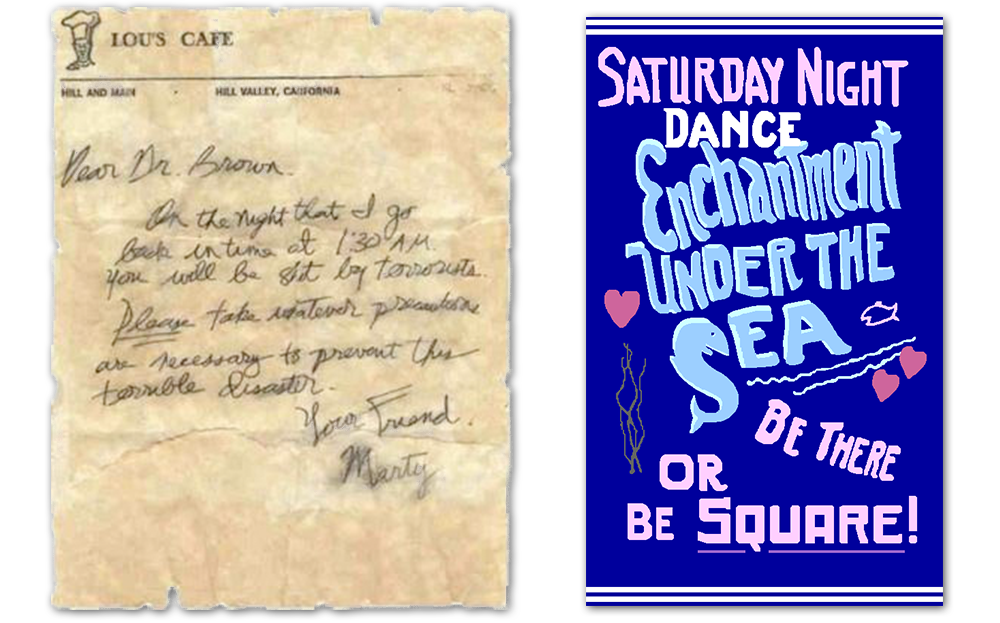 LOU'S CAFE
HILL AND MAIN HILL VALLEY, CALIFORNIA
Dear Dr. Brown.
On the Night that I go
back in time at 1:30 AM.
You will be Shot by terrorists.
Please take whatever precautions
are necessary to prevent this
terrible disaster.
Your Friend.
Marty
SATURDAY NIGHT
DANCE
Enchantment
UNDER THE
SEA
BE THERE
OR
BE SQUARE!